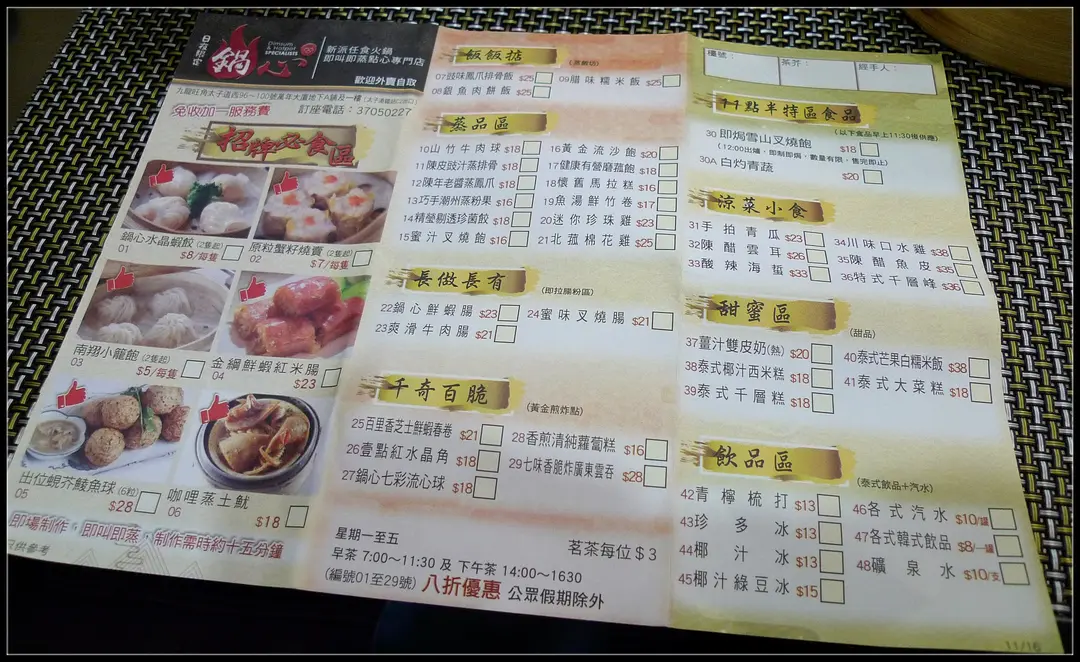 日夜限定
鍋心
Dimsum & Hotpot
SPECIALISTS
新派任食火鍋
即叫即蒸點心專門店
歡迎外賣自取
九龍旺角太子道西96～100號萬年大廈地下A舖及一樓
免收加一服務費
訂座電話：37050227
招牌必食區
鍋心水晶蝦餃 (2隻起)
01 $8/每隻
原粒蟹籽燒賣 (2隻起)
02 $7/每隻
南翔小籠飽 (2隻起)
03 $5/每隻
金綱鮮蝦紅米腸
04 $23
出位蜆芥鯪魚球 (6粒)
05 $28
咖哩蒸土魷
06 $18
即場制作，即叫即蒸，制作需時約十五分鐘
只供參考
飯飯掂
07豉味鳳爪排骨飯 $25
08鹹魚肉餅飯 $25
09腊味糯米飯 $25
蒸品區
10山竹牛肉球 $18
11陳皮豉汁蒸排骨 $18
12陳年老醬蒸鳳爪 $18
13巧手潮州蒸粉果 $16
14精瑩剔透珍菌餃 $18
15蜜汁叉燒飽 $16
16黃金流沙飽 $20
17健康有營磨菰飽 $18
18懷舊馬拉糕 $16
19魚湯鮮竹卷 $17
20迷你珍珠雞 $23
21北菰棉花雞 $25
長做長有
(即拉腸粉區)
22鍋心鮮蝦腸 $23
23爽滑牛肉腸 $21
24蜜味叉燒腸 $21
千奇百脆
(黃金煎炸點)
25百里香芝士鮮蝦春卷 $21
26壹點紅水晶角 $18
27鍋心七彩流心球 $18
28香煎清純蘿蔔糕 $16
29七味香脆炸廣東雲吞 $28
星期一至五
早茶 7:00～11:30 及 下午茶 14:00～1630
(編號01至29號) 八折優惠 公眾假期除外
茗茶每位 $3
檯號：
茶芥：
經手人：
11點半特區食品
(以下食品早上11:30後供應)
30 即焗雪山叉燒飽 $18
(12:00出爐，即制即焗，數量有限，售完即止)
30A 白灼青蔬 $20
涼菜小食
31手拍青瓜 $23
32陳醋雲耳 $26
33酸辣海蜇 $33
34川味口水雞 $38
35陳醋魚皮 $35
36特式千層峰 $36
甜蜜區
(甜品)
37薑汁雙皮奶(熱) $20
38泰式椰汁西米糕 $18
39泰式千層糕 $18
40泰式芒果白糯米飯 $38
41泰式大菜糕 $18
飲品區
(泰式飲品+汽水)
42青檸梳打 $13
43珍多冰 $13
44椰汁冰 $13
45椰汁綠豆冰 $15
46各式汽水 $10/罐
47各式韓式飲品 $8/一罐
48礦泉水 $10/支
11/16